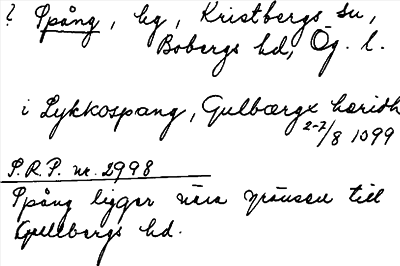 ? Spång, hg, Kristbergs sn,
Bobergs hd, Ög. l.
i Lykkospang, Gulbærgx hæridh
2-7/8 1099
S.R.P. nr. 2998
Spång ligger nära gränsen till
Gullbergs hd.